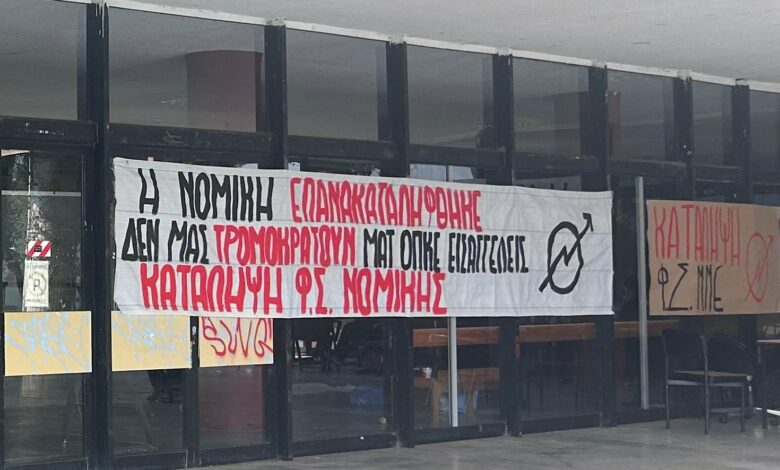 Η ΝΟΜΙΚΗ ΕΠΑΝΑΚΑΤΑΛΗΦΘΗΚΕ
ΔΕΝ ΜΑΣ ΤΡΟΜΟΚΡΑΤΟΥΝ ΜΑΤ ΟΠΚΕ ΕΙΣΑΓΓΕΛΕΙΣ
ΚΑΤΑΛΗΨΗ Φ.Σ. ΝΟΜΙΚΗΣ
ΚΑΤΑΛΗΨΗ
Φ.Σ. ΜΜΕ